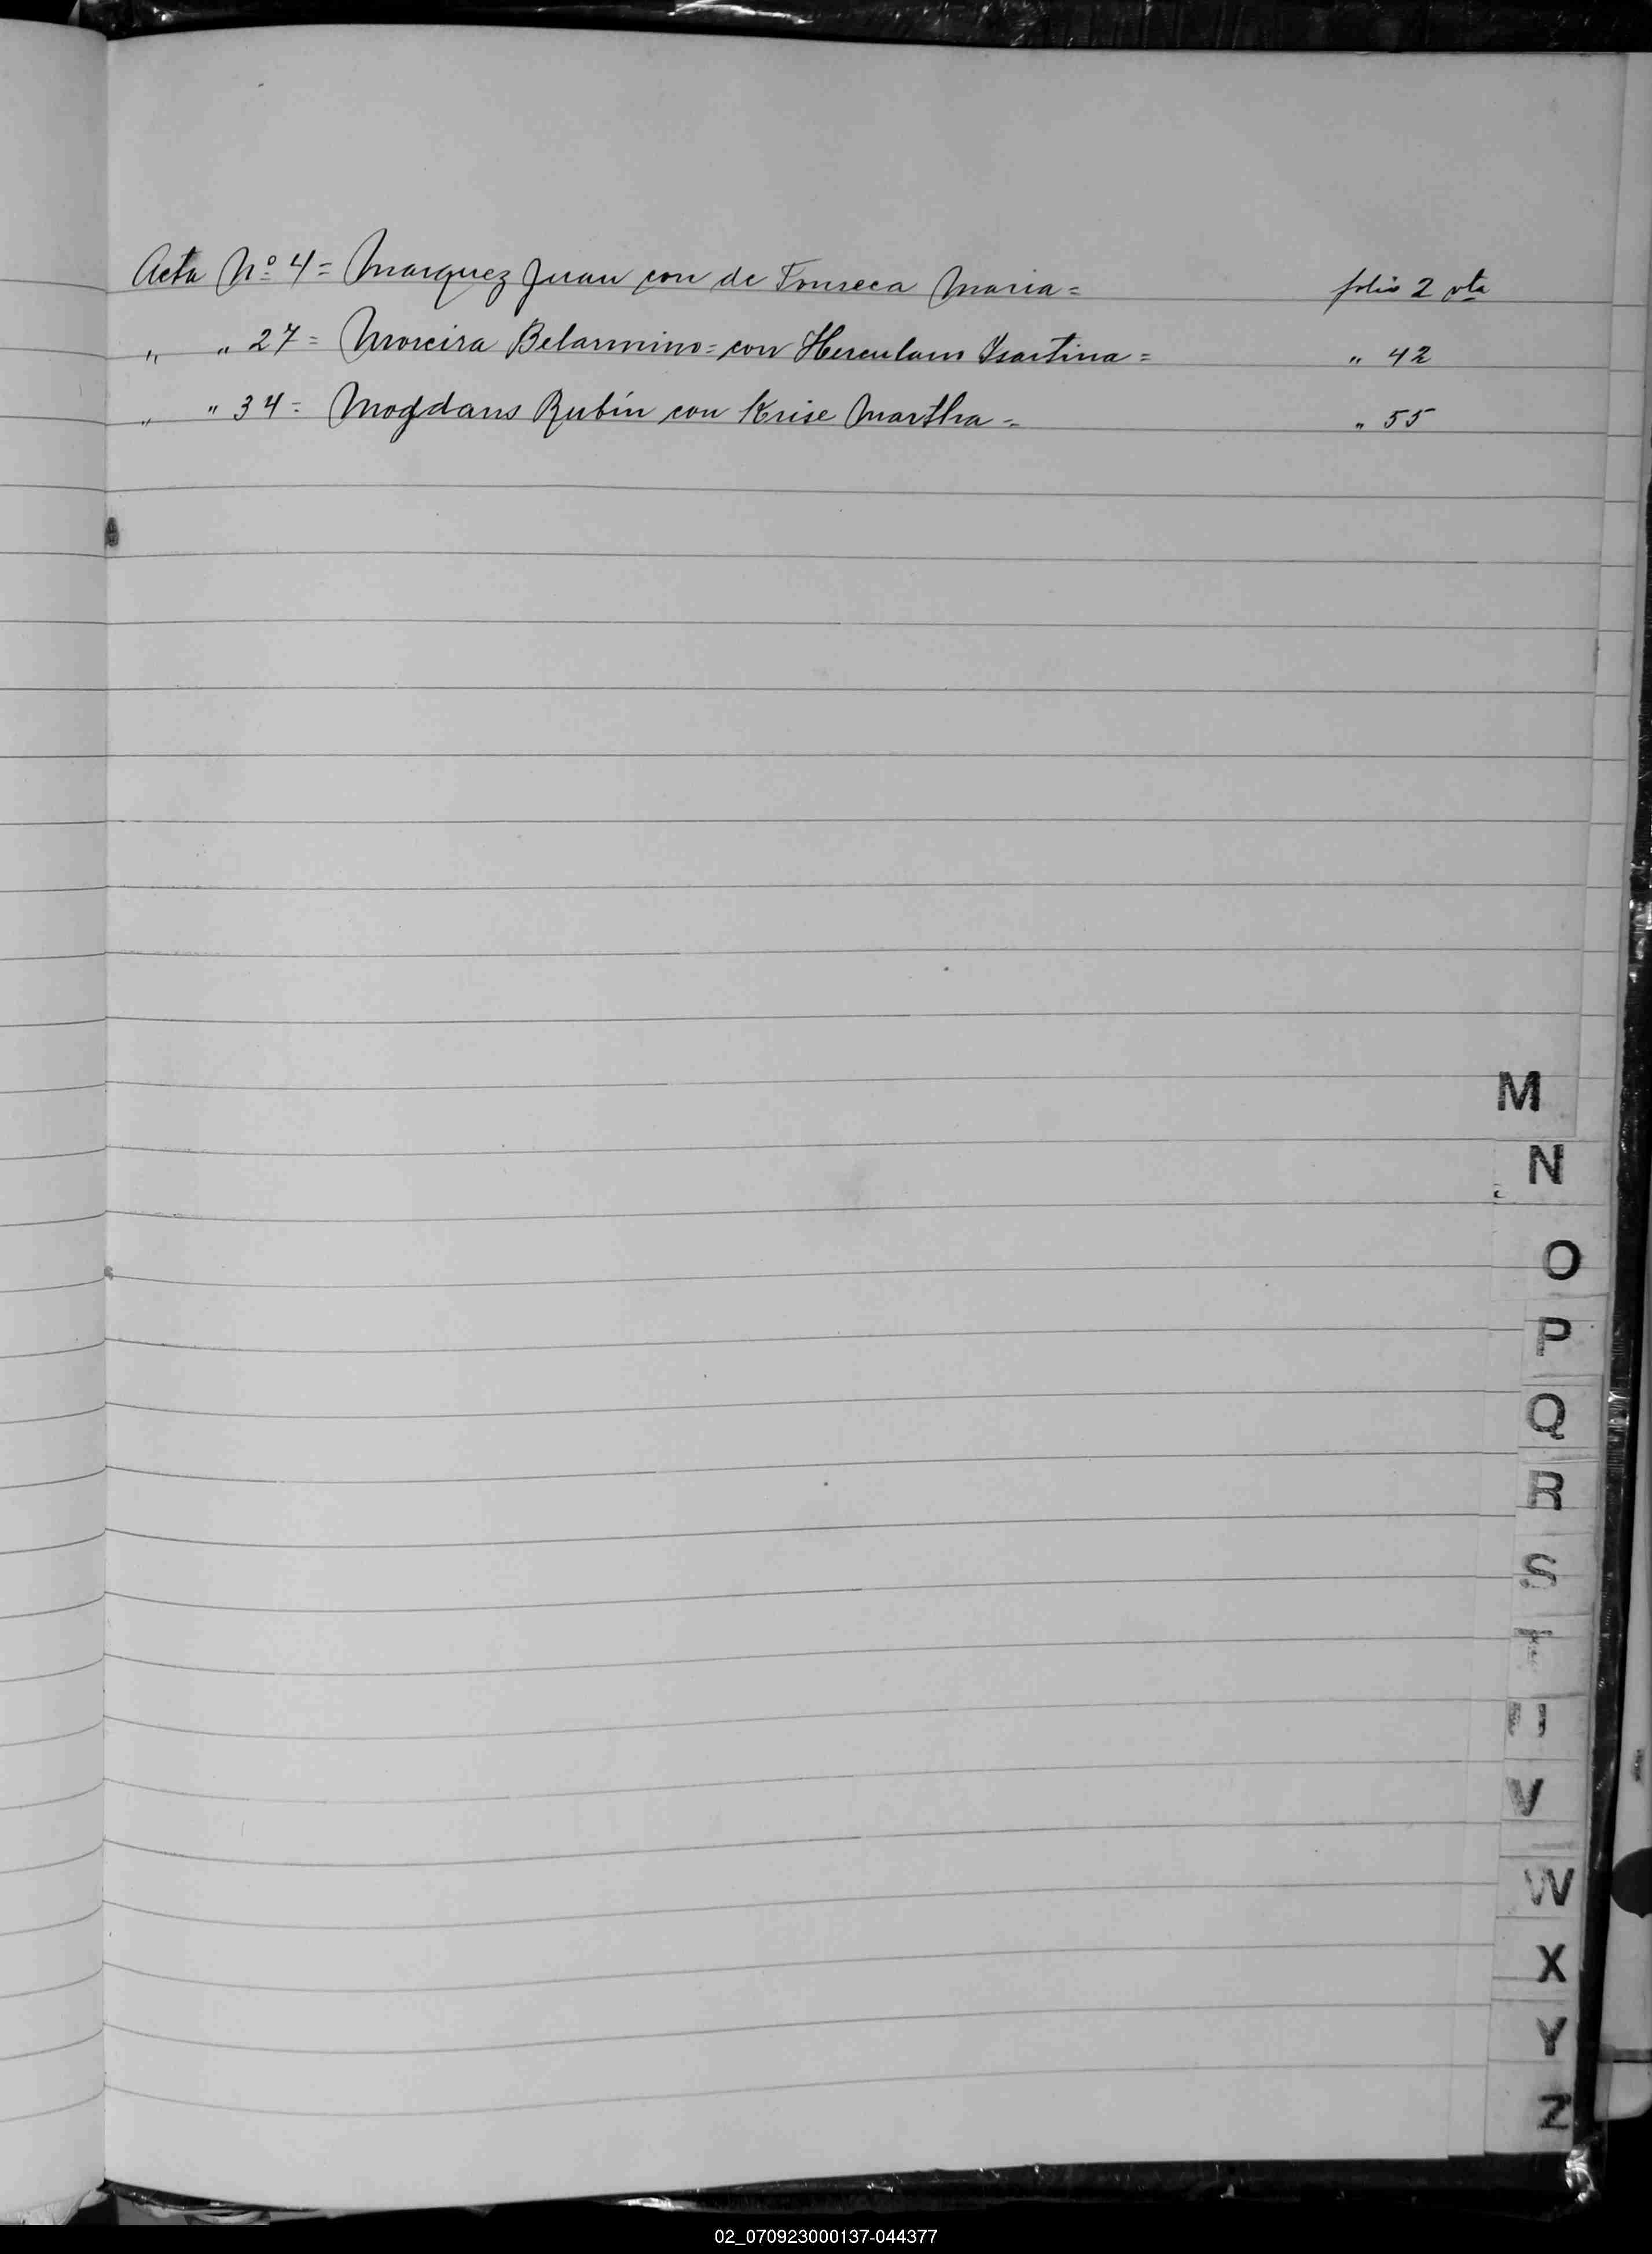 Acta Nº 4= Marquez Juan con de Fonseca Maria= folio 2 vta
" " 27= Moreira Belarmino= con Herculano Isartina= " 42
" " 34= Mogdans Rubín con Krise Martha= " 55
M
N
O
P
Q
R
S
T
U
V
W
X
Y
Z
02_070923000137-044377